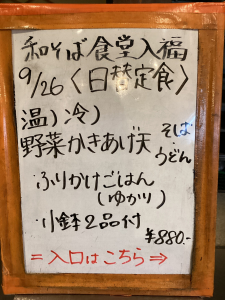 和そば食堂入福
9/26〈日替定食〉
温)冷)
野菜かきあげ天 そば・うどん
ふりかけごはん
(ゆかり)
小鉢2品付
¥880.-
=入口はこちら⇒